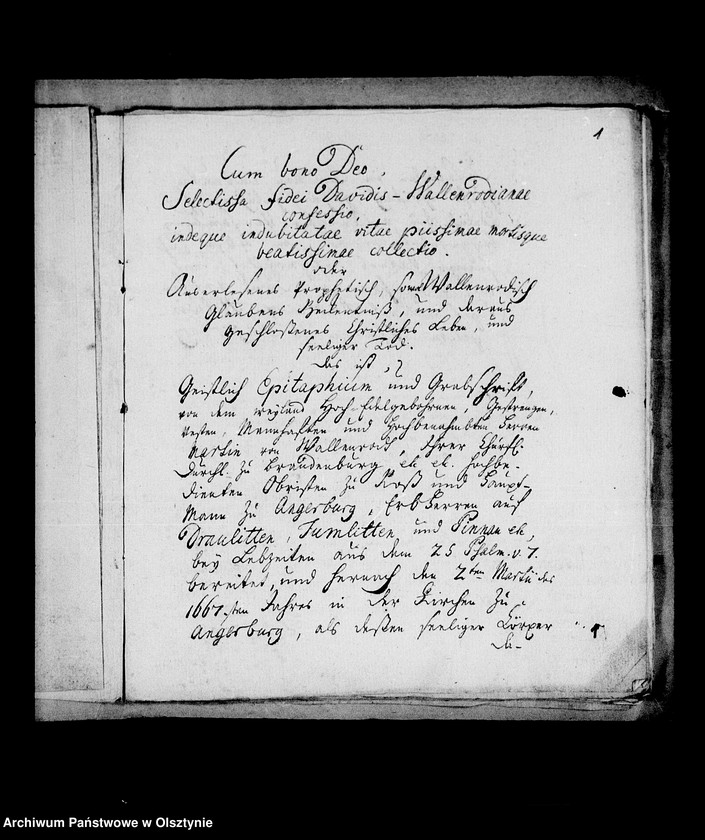 1
Cum bono Deo,
Selectissa fidei Davidis-Wallenrodianae
confessio,
indeque indubitatae vitae piissimae mortisque
beatissimae collectio.
oder
Auserlesenes Prophetisch, sowol Wallenrodisch
Glaubens Bekentniß, und daraus
geschloßenes Christliches Leben, und
seeliger Tod.
das ist,
Geistlich Epitaphium und Grabschrifft,
von dem weyland Hoch-Edelgebohrnen, Gestrengen,
Vesten, Mannhafften und Hochbenahmbten Herren
Martin von Wallenrodt, Ihrer Churfl.
Durchl. zu Brandenburg etc etc. hochbe-
dienten Obristen zu Roß und Haupt-
Mann zu Angerburg, Erb Herren auf
Draulitten, Tumlitten und Pinnau etc,
bey Lebzeiten aus dem 25 Psalm. v. 7.
bereitet, und hernach den 2ten Martii des
1667.sten Jahres in der Kirchen zu
Angerburg, als deßen seeliger Körper
da-
Archiwum Państwowe w Olsztynie